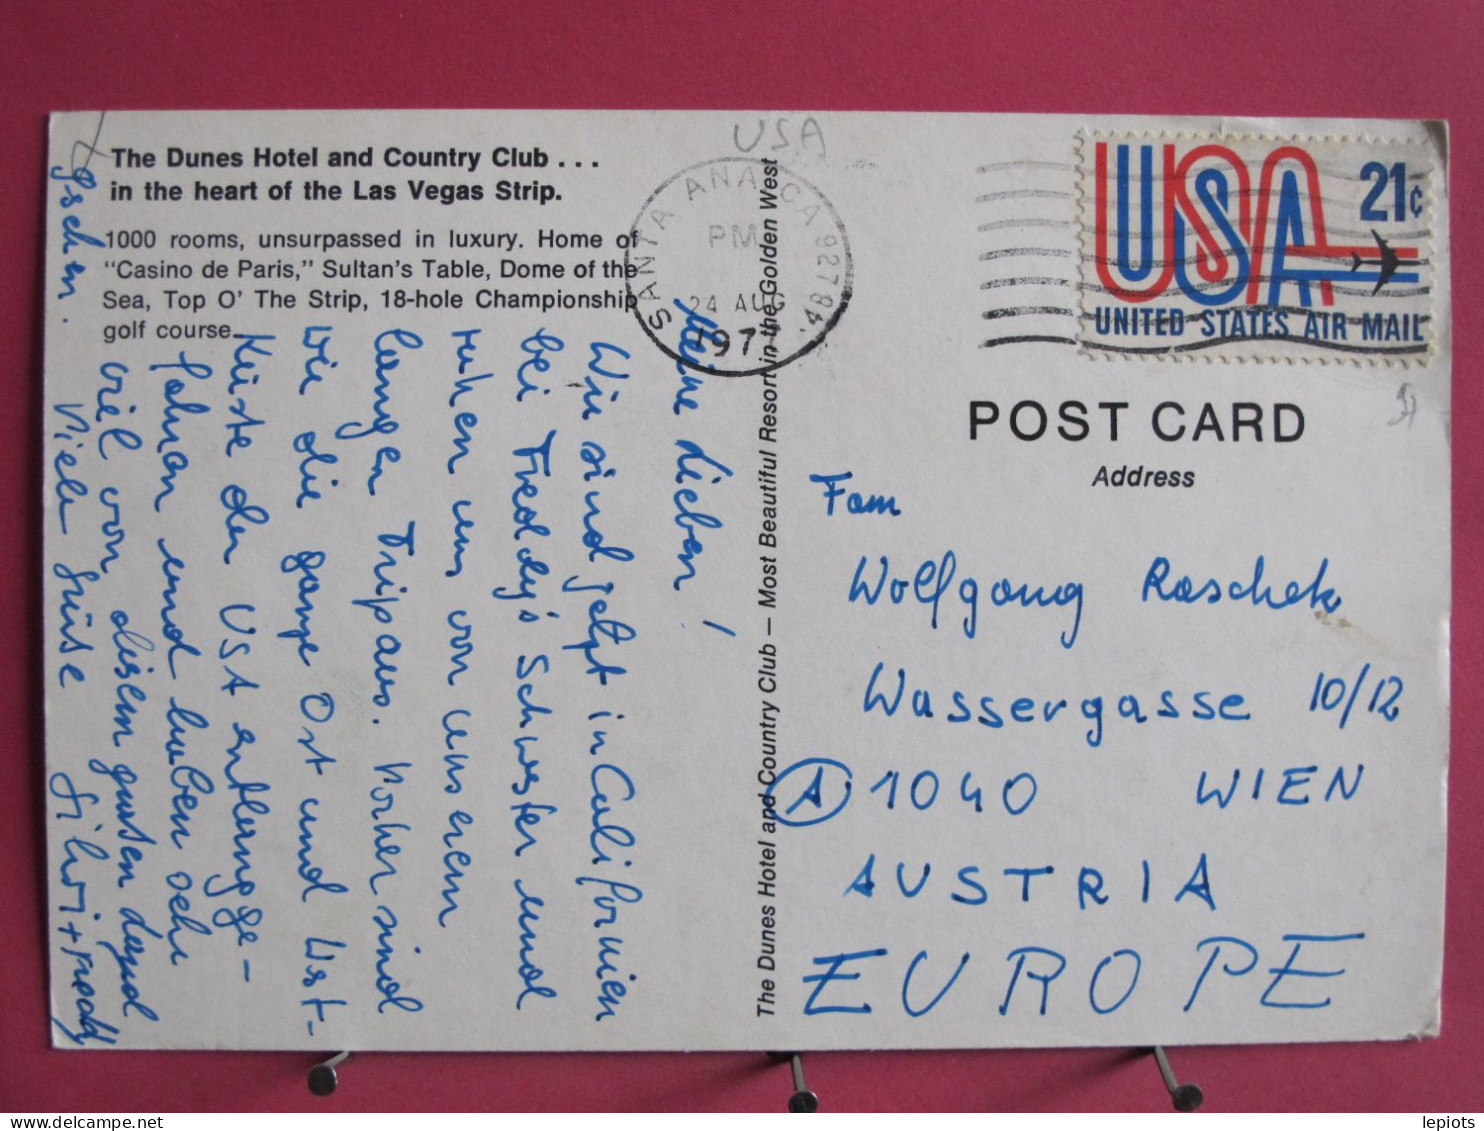 The Dunes Hotel and Country Club . . .
in the heart of the Las Vegas Strip.
1000 rooms, unsurpassed in luxury. Home of
"Casino de Paris," Sultan's Table, Dome of the
Sea, Top O' The Strip, 18-hole Championship
golf course.
USA
SANTA ANA, CA 927
PM
24 AUG
197
USA 21¢
UNITED STATES AIR MAIL
The Dunes Hotel and Country Club — Most Beautiful Resort in the Golden West
POST CARD
Address
Fam
Wolfgang Raschek
Wassergasse 10/12
A 1040 WIEN
AUSTRIA
EUROPE
Meine Lieben!
Wir sind jetzt in Californien
bei Freddy's Schwester und
ruhen uns von unserem
langen Trip aus. Vorher sind
wir die ganze Ost und West-
Küste der USA entlangge-
fahren und haben sehr
viel von diesem großen Land
gsehen.
Viele Grüße Silvi + Freddy
lepiots